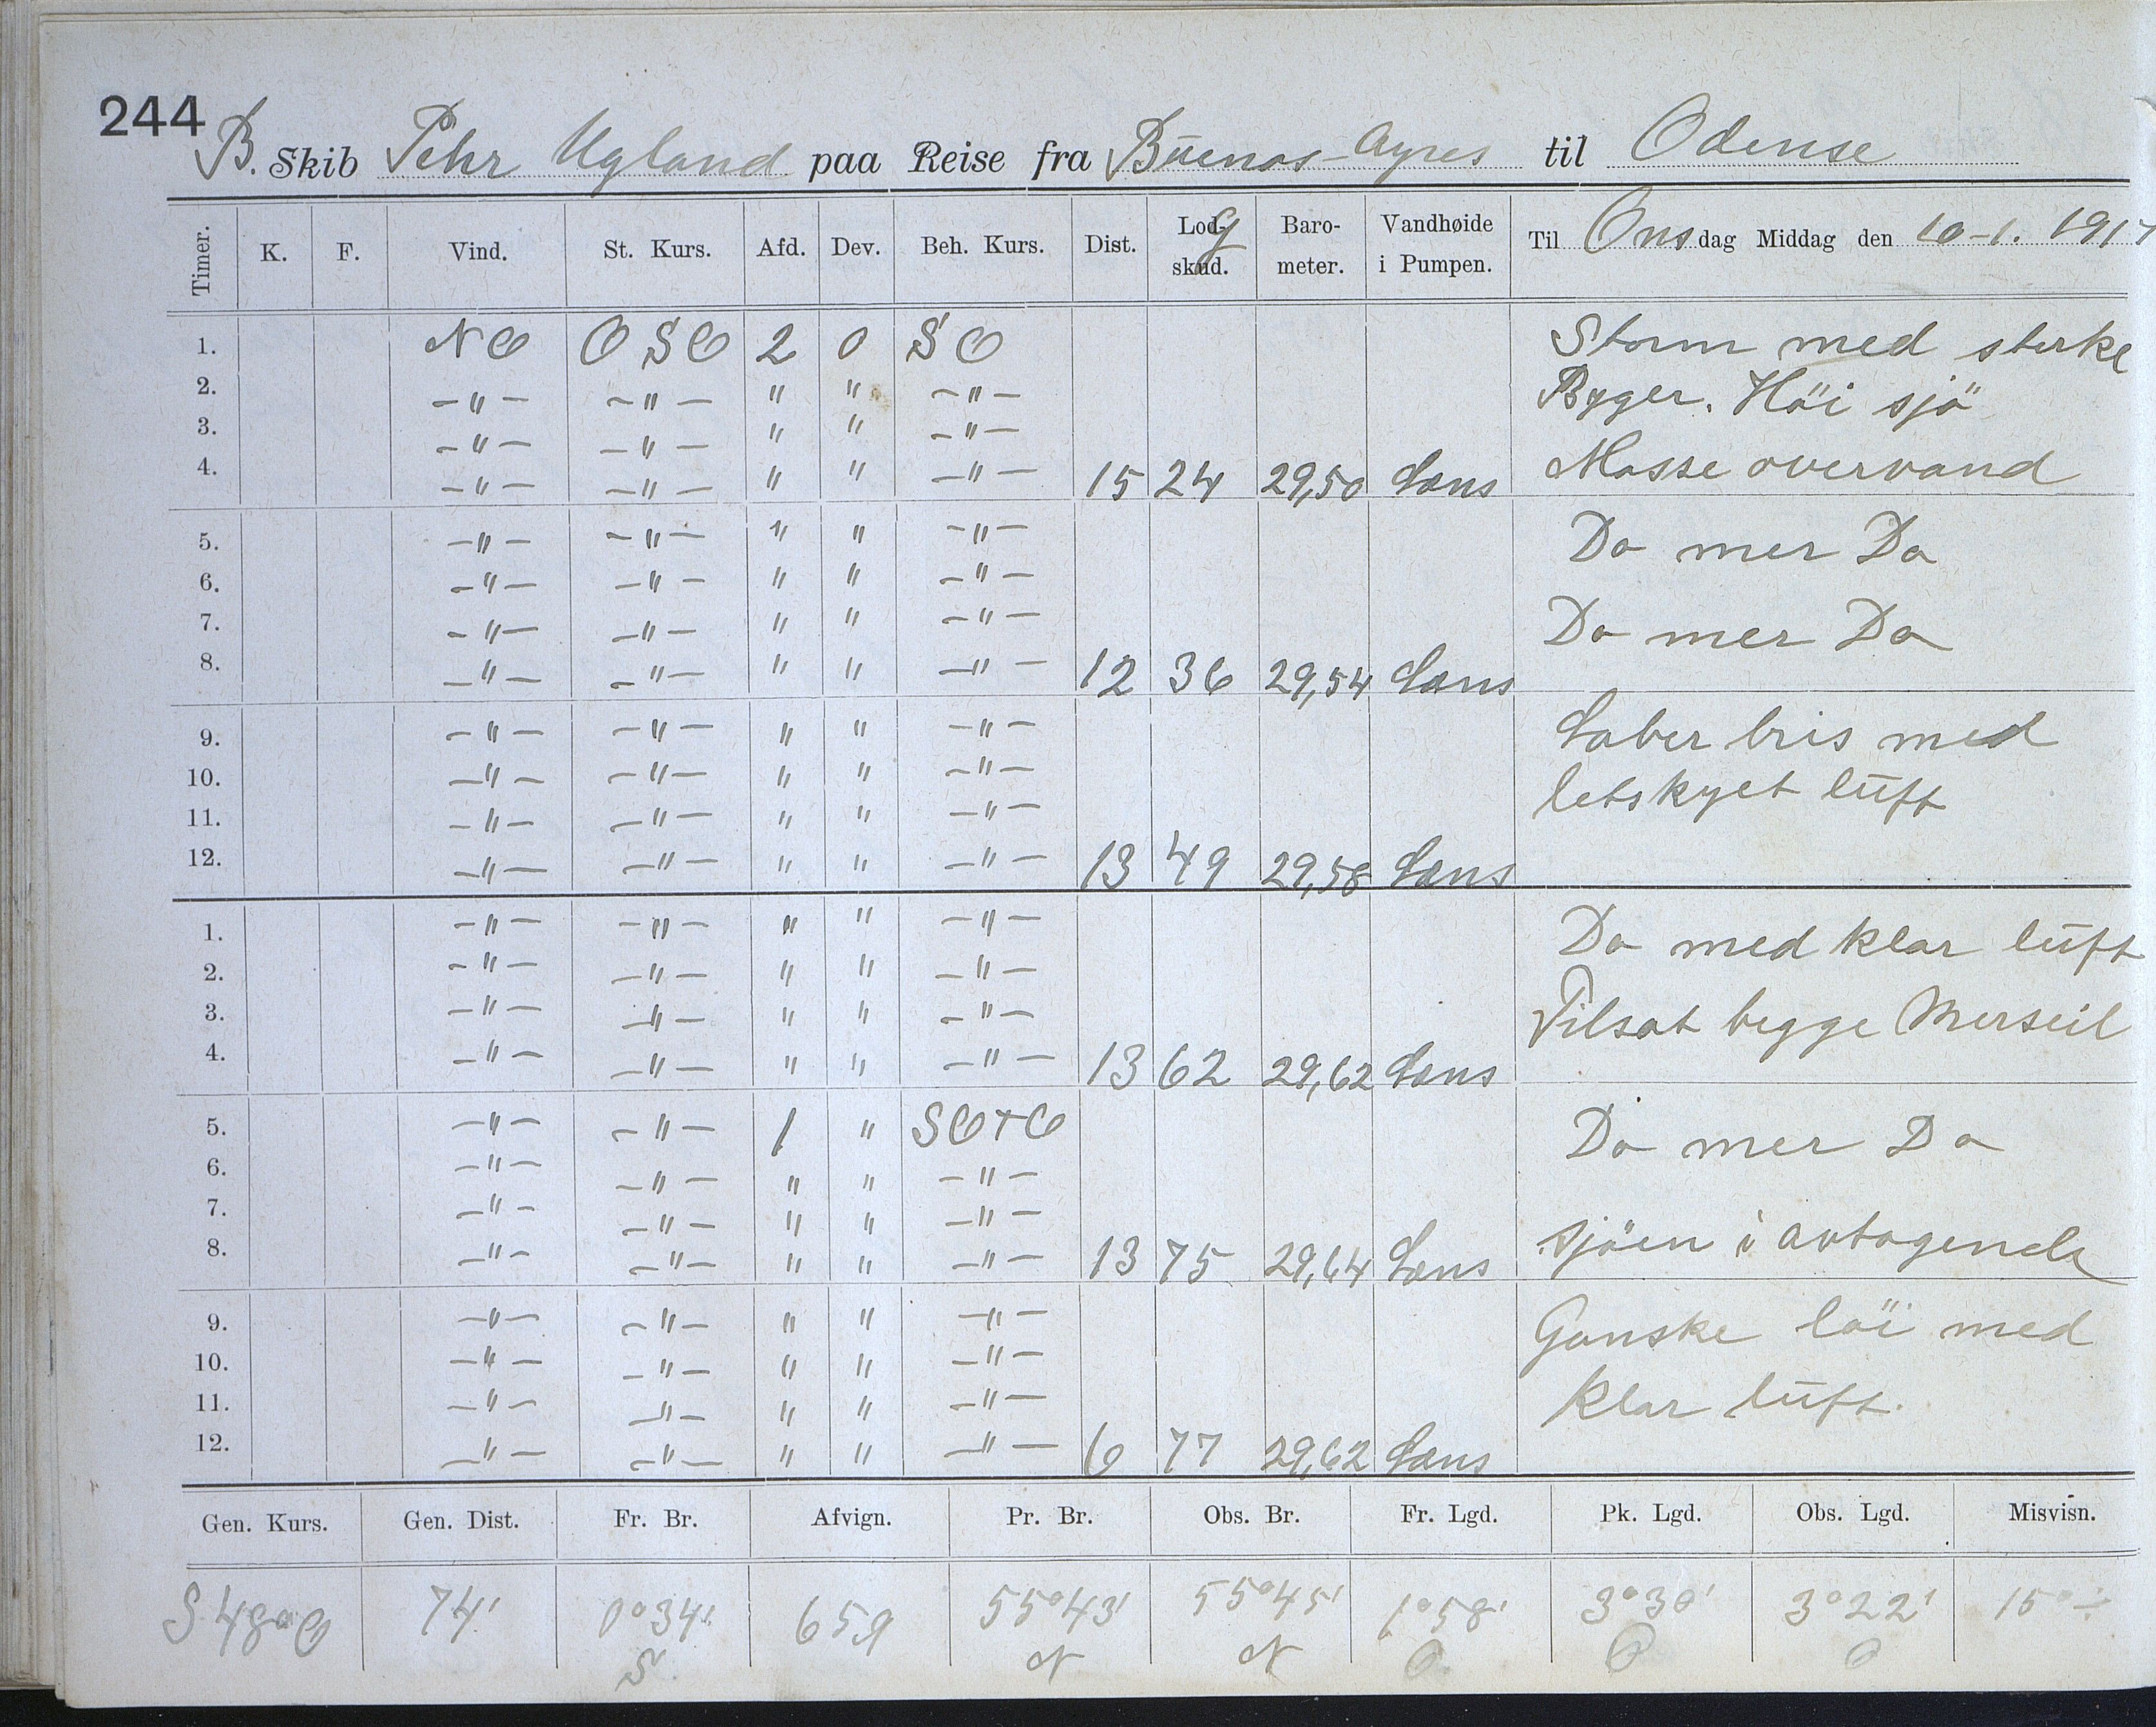 244
B. Skib Pehr Ugland paa Reise fra Buenos-Ayres til Odense
Timer. K. F. Vind. St. Kurs. Afd. Dev. Beh. Kurs. Dist. Logskud. Barometer. Vandhøide i Pumpen. Til Onsdag Middag den 10-1. 1917
1. NO OSO 2 0 SO Storm med sterke
2. -"- -"- " " -"- Byger. Höi sjö
3. -"- -"- " " -"-
4. -"- -"- " " -"- 15 24 29,50 Læns Masse overvand
5. -"- -"- " " -"- Do mer Do
6. -"- -"- " " -"-
7. -"- -"- " " -"- Do mer Do
8. -"- -"- " " -"- 12 36 29,54 Læns
9. -"- -"- " " -"- Laber bris med
10. -"- -"- " " -"- letskyet luft
11. -"- -"- " " -"-
12. -"- -"- " " -"- 13 49 29,58 Læns
1. -"- -"- " " -"- Do med klar luft
2. -"- -"- " " -"-
3. -"- -"- " " -"- Tilsat begge Merseil
4. -"- -"- " " -"- 13 62 29,62 Læns
5. -"- -"- 1 " SO+O Do mer Do
6. -"- -"- " " -"-
7. -"- -"- " " -"-
8. -"- -"- " " -"- 13 75 29,64 Læns sjöen i avtagende
9. -"- -"- " " -"- Ganske löi med
10. -"- -"- " " -"-
11. -"- -"- " " -"- klar luft.
12. -"- -"- " " -"- 6 77 29,62 Læns
Gen. Kurs. Gen. Dist. Fr. Br. Afvign. Pr. Br. Obs. Br. Fr. Lgd. Pk. Lgd. Obs. Lgd. Misvisn.
S 48° O 74' 0°34' S 659 55°43' N 55°45' N 1°58' O 3°30' O 3°22' O 15° ÷